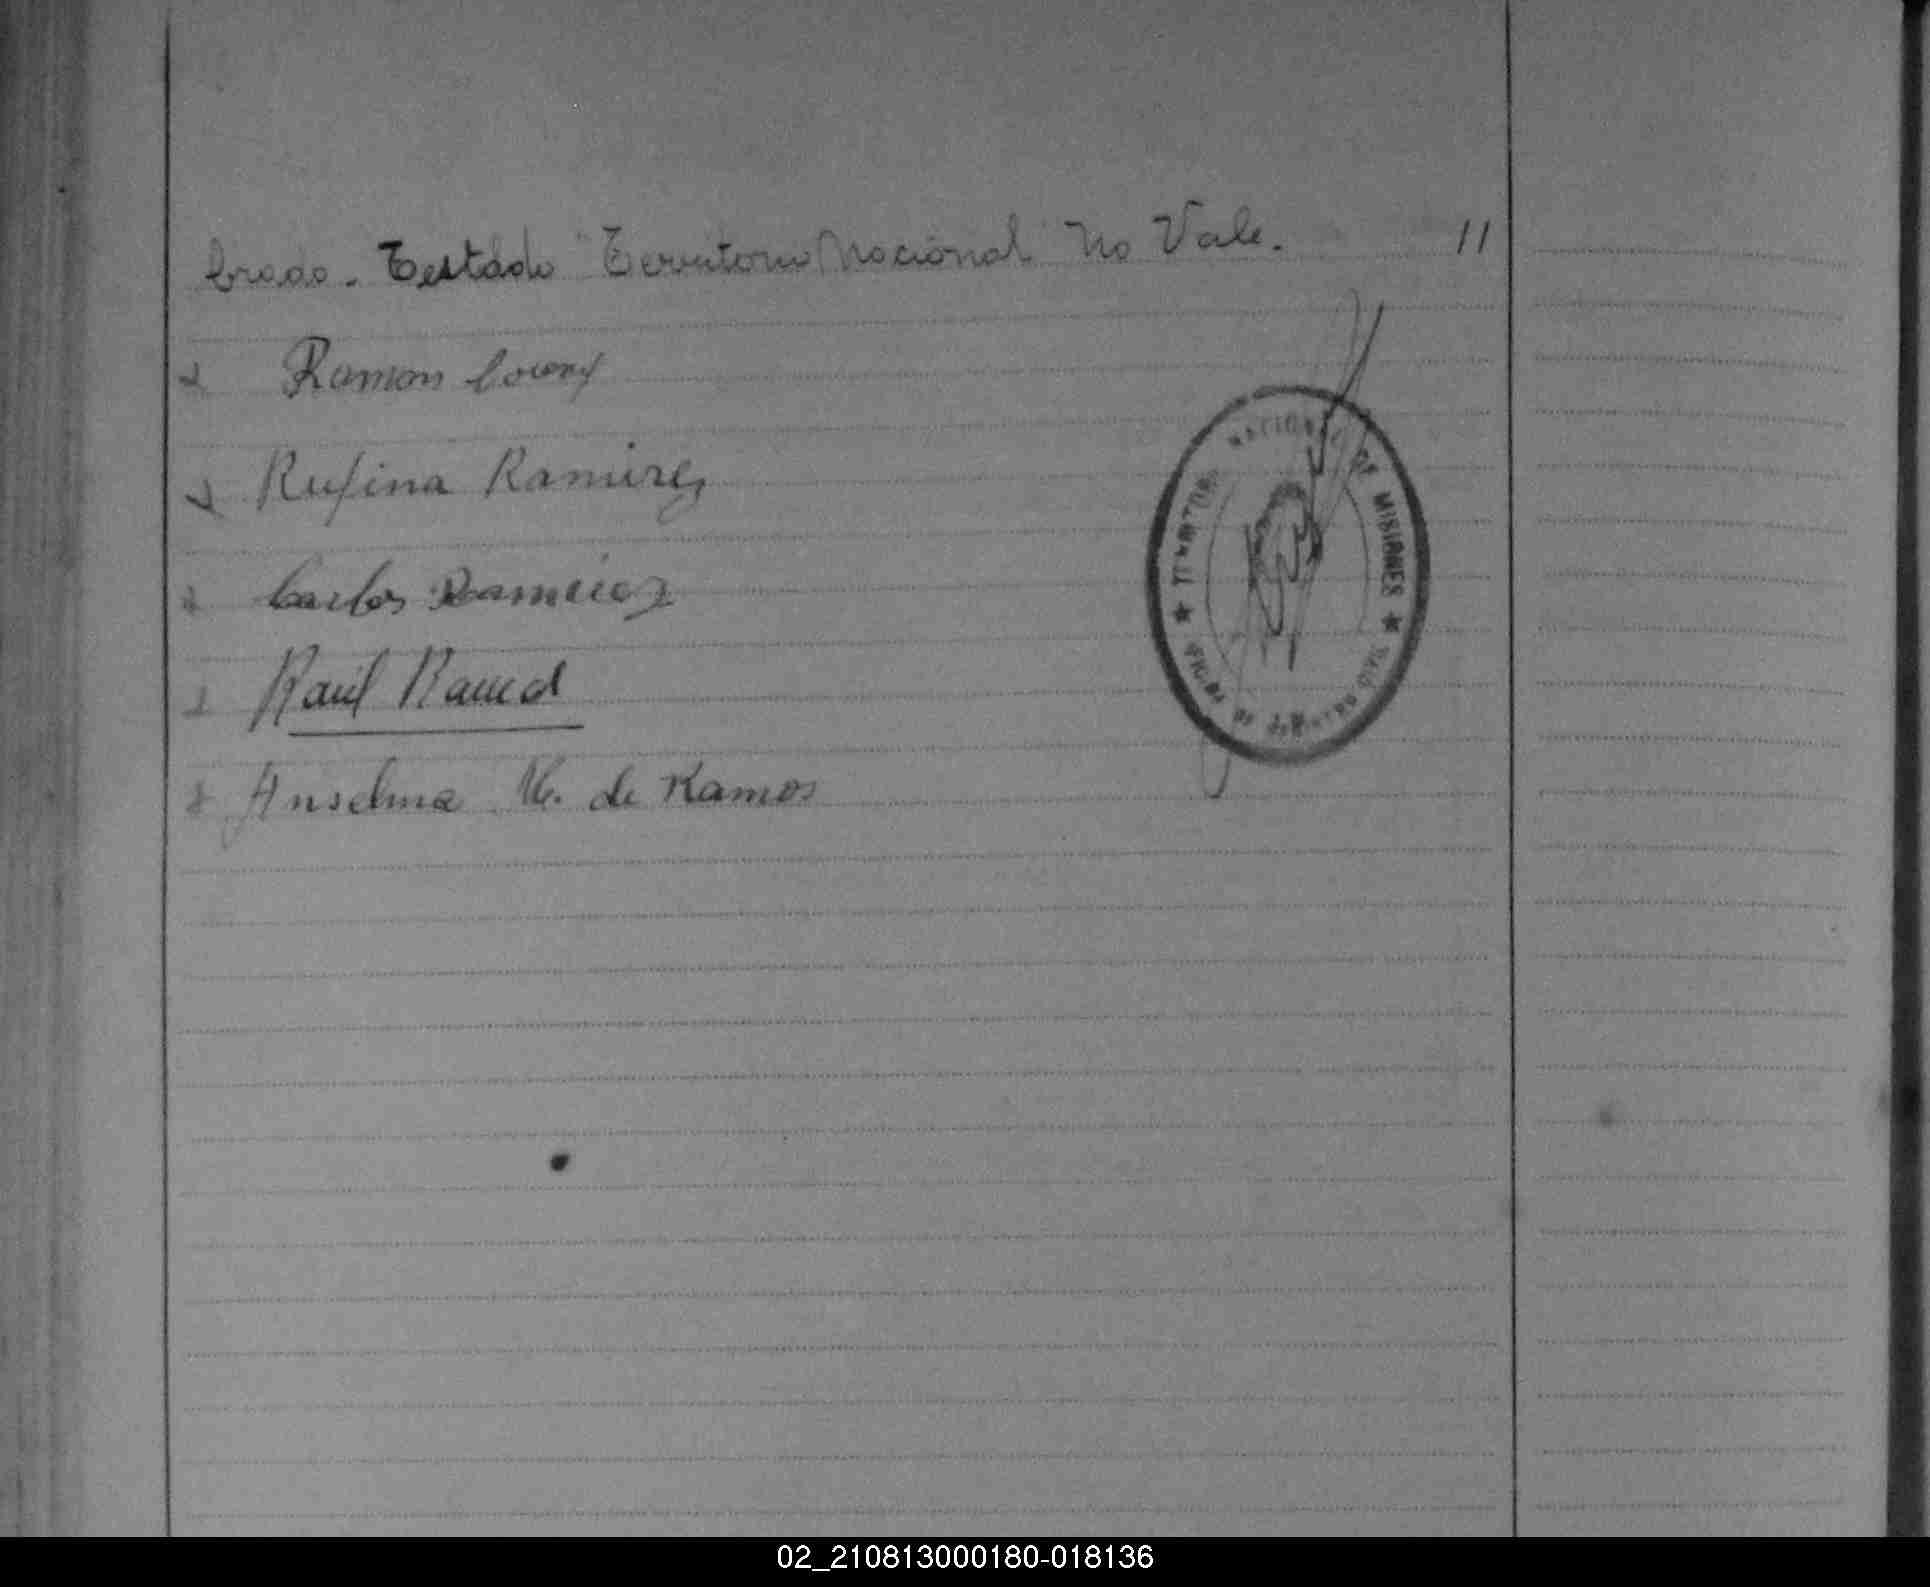 brado. Testado "Territorio Nacional" No Vale. 11
Ramon
Rufina Ramirez
Carlos Ramirez
Raúl
Anselma M. de Ramos
TERRITORIO NACIONAL DE MISIONES
OFICINA DE REGISTRO CIVIL
02_210813000180-018136